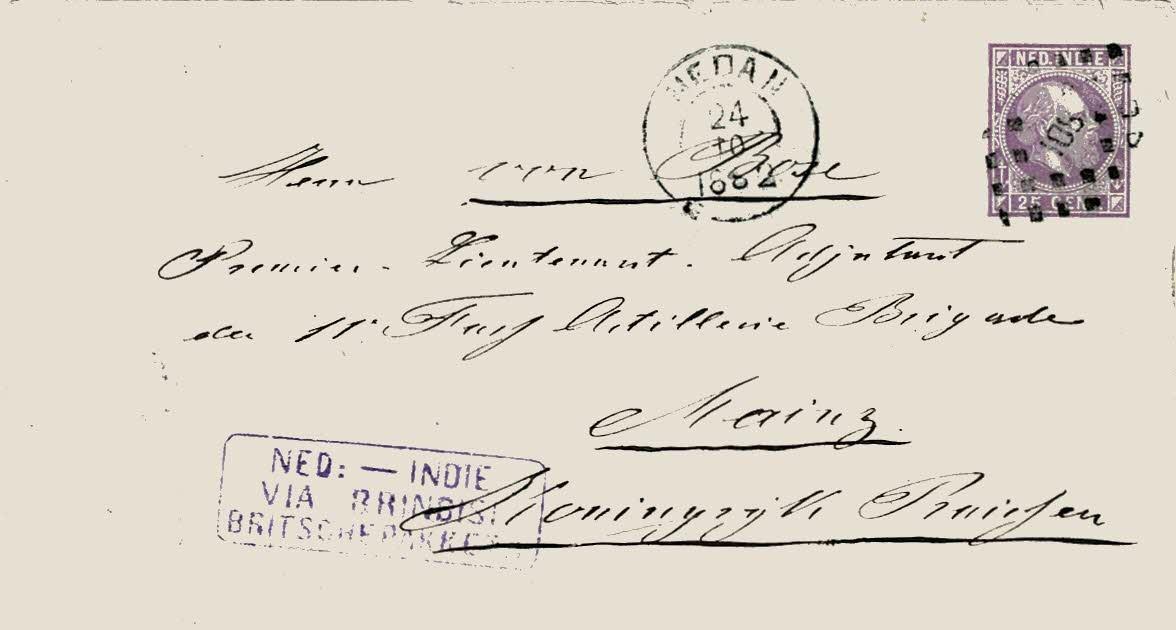 MEDAN
24
10
1882
NED. INDIE
108
25 CENT
Herrn von Bose
Premier-Lieutenant. Adjutant
der 11. Artillerie Brigade
Mainz.
NED: — INDIE
VIA BRINDISI
BRITSCHE PAKKET
Koningryk Pruisen